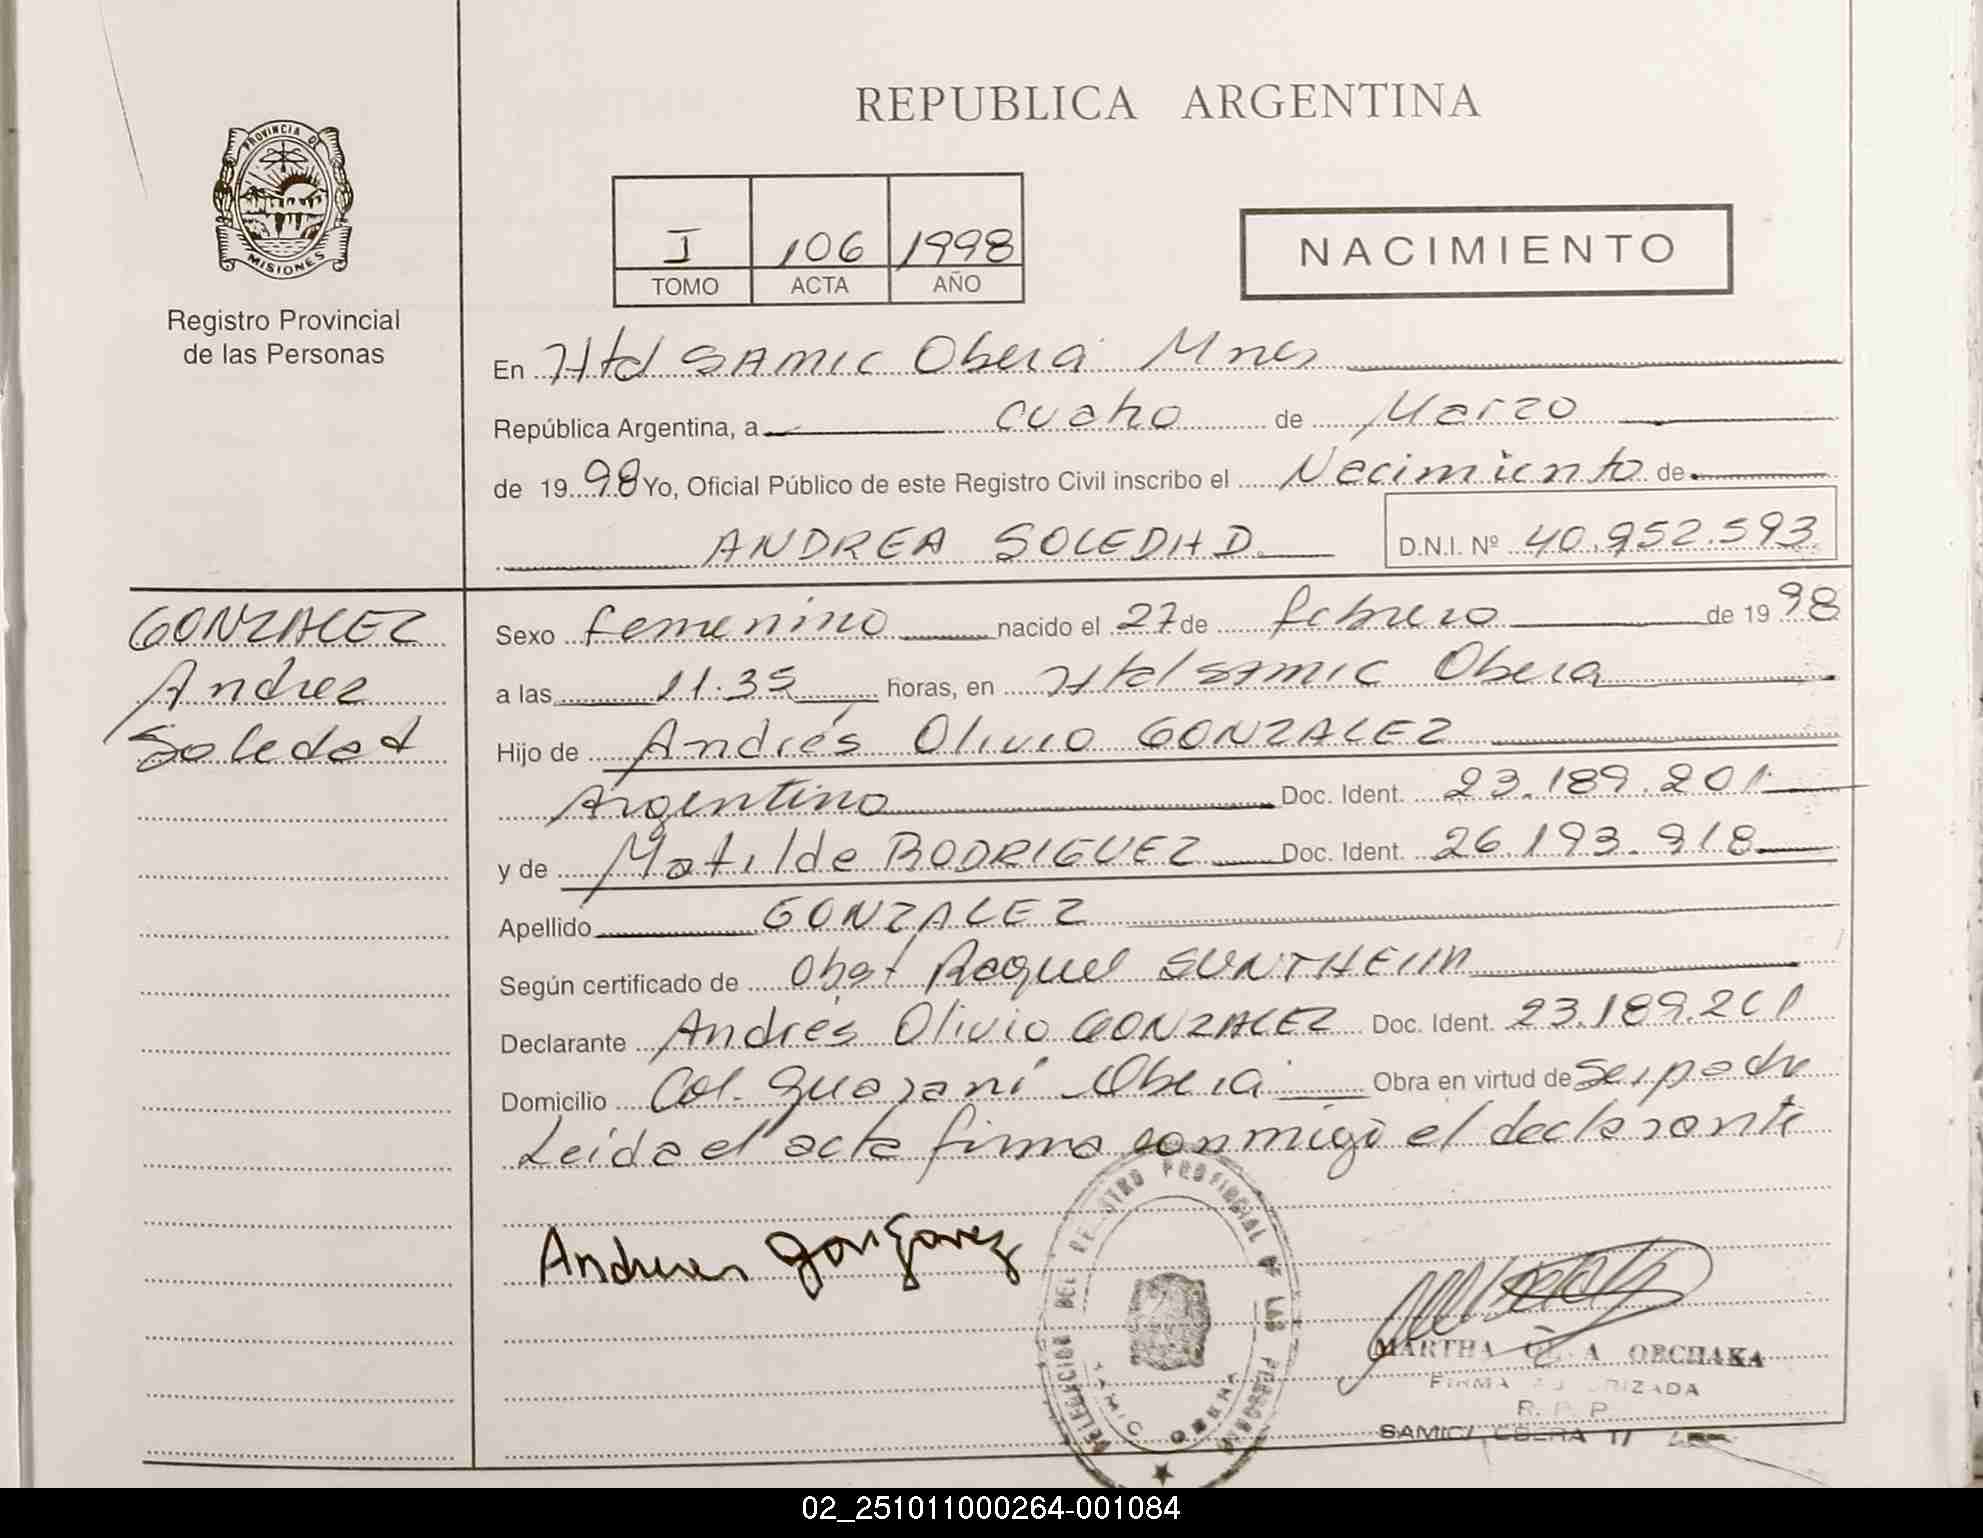 REPUBLICA ARGENTINA
PROVINCIA DE
MISIONES
Registro Provincial
de las Personas
I 106 1998
TOMO ACTA AÑO
NACIMIENTO
En Htal SAMIC Oberá Mnes
República Argentina, a cuatro de Marzo
de 1998 Yo, Oficial Público de este Registro Civil inscribo el Nacimiento de
ANDREA SOLEDAD D.N.I. Nº 40.952.593
GONZALEZ
Andrea
Soledad
Sexo femenino nacido el 27 de febrero de 1998
a las 11.35 horas, en Htal SAMIC Obera
Hijo de Andrés Olivio GONZALEZ
Argentino Doc. Ident. 23.189.201
y de Matilde RODRIGUEZ Doc. Ident. 26.193.918
Apellido GONZALEZ
Según certificado de Obst Raquel SUNTHEIM
Declarante Andrés Olivio GONZALEZ Doc. Ident. 23.189.201
Domicilio Col. Guaraní Oberá Obra en virtud de ser padre
Leída el acta firma conmigo el declarante
DELEGACION DEL REGISTRO PROVINCIAL DE LAS PERSONAS
SAMIC OBERA
MARTHA ORCHAKA
FIRMA AUTORIZADA
R. P. P.
SAMIC OBERA
02_251011000264-001084